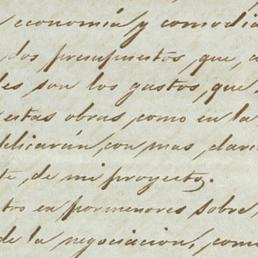 economía y comodi
dos presupuestos que, a
es son los gastos, que
estas obras como en la
plicarán, con mas clari
te, de mi proyecto.
tro en pormenores sobre
de la negociacion, como